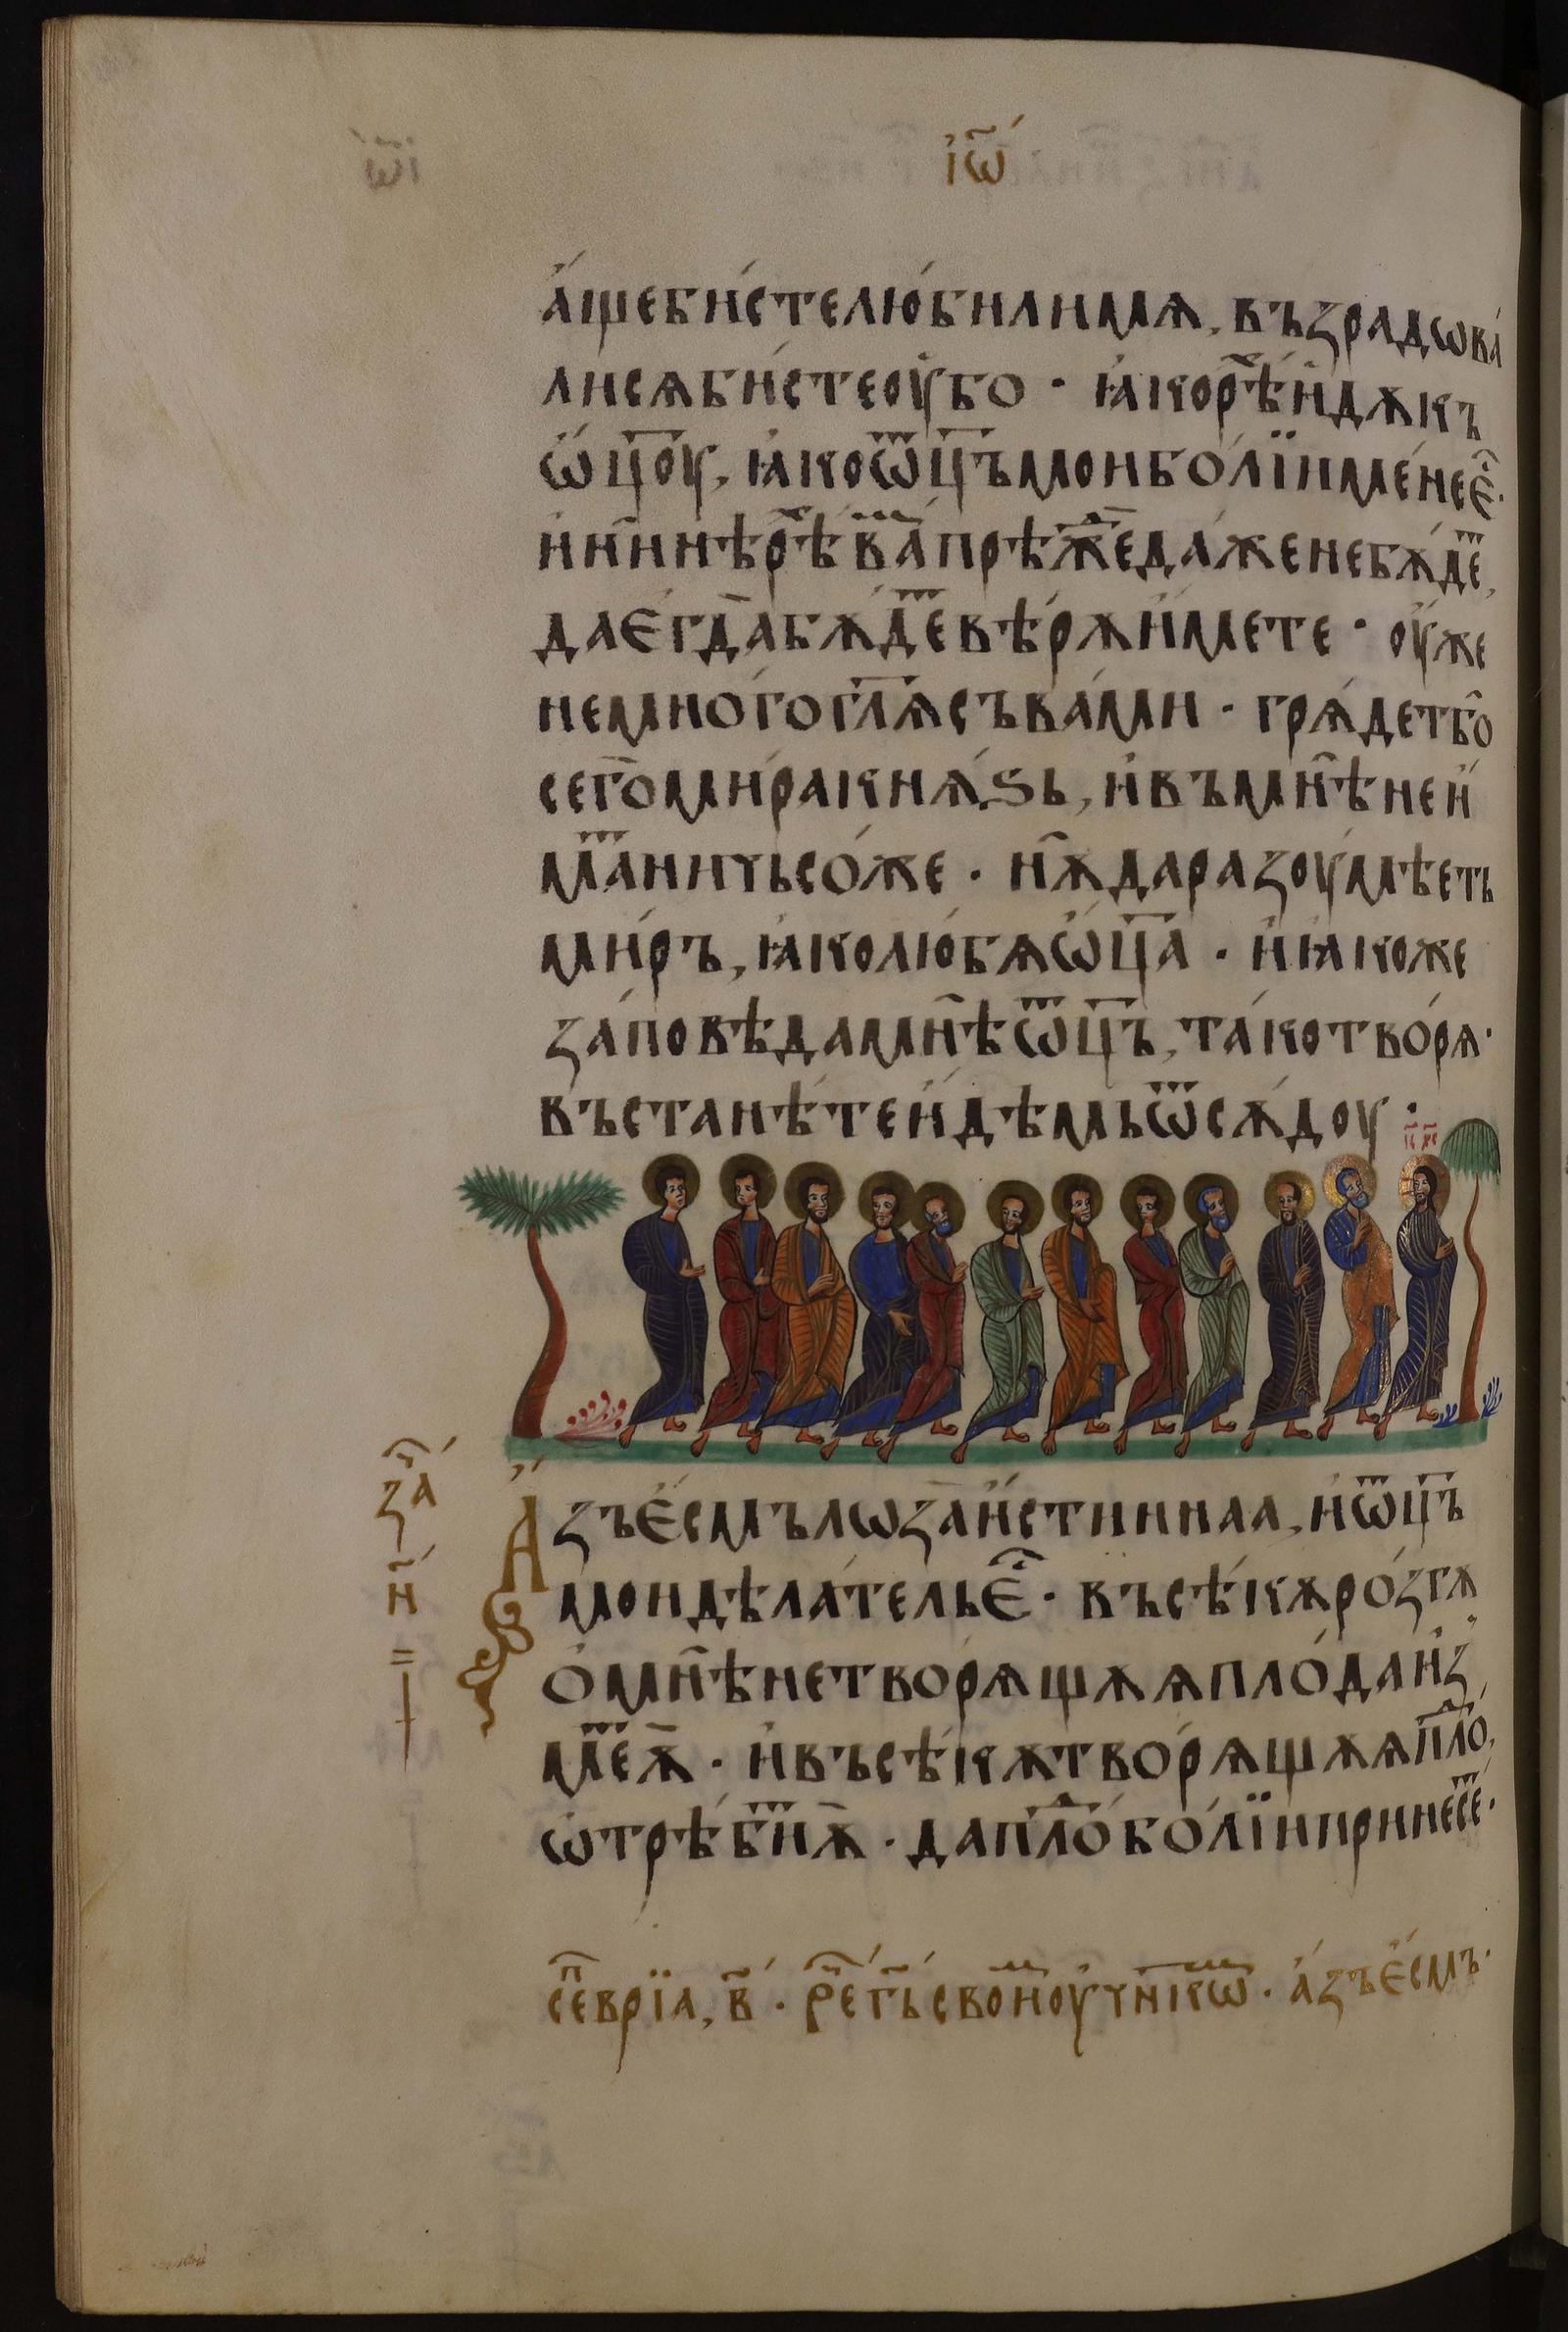 і҆ѡ҃
а҆́щебы́стелю́билимѧ, възрадѡва́
лисѧбы́стеоу҆бо · ꙗ҆корѣ́хи҆дѫкъ
ѿц҃оу, ꙗ҆коѿц҃ъмоиболїиме́неє҆҃·
и҆нн҃ѣрѣ́хва́прѣ́жедаженебѫ́де,
даєгда́бѫ́девѣ́рѫи҆́мете · оу҆́же
немно́гогл҃ѧсъва́ми · грѧ́детбо
сего́ми́ракнѧ́ѕь, и҆въмн҃ѣнеи҆́
ма́ничьсо́же · нѫ̑даразоумѣ́еть
ми́ръ, ꙗ҆колю́бѧѿц҃а · и҆ꙗ҆коже
за́повѣдамн҃ѣѿц҃ъ, та́котво́рѧ·
въстанѣ́теи҆́дѣмьѿсѫ́доу :
і҃с х҃с
за҄
н҃
А҆́зъє҆́смълѡза́и҆́стиннаа, и҆ѿц҃ъ
моидѣ́лательє҆҃ · въсѣ́кѫро́згѫ
ѻ҆мн҃ѣнетво́рѧщѫѧпло́даи҆́з,
ме́ѧ̑ · и҆въсѣ́кѫтво́рѧщѫѧпло́,
ѡ҆трѣ́биѫ̑ · даплоболїипринесе·
севрїа, в҃ · ре́г҃ьсвоиоучн҃кѡ · а҆́зъє҆́смъ·